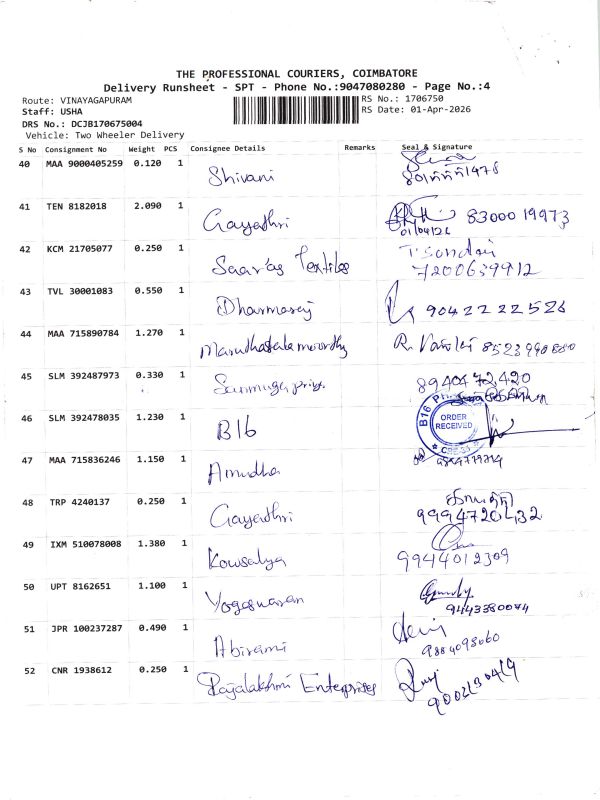 THE PROFESSIONAL COURIERS, COIMBATORE
Delivery Runsheet - SPT - Phone No.:9047080280 - Page No.:4
Route: VINAYAGAPURAM
RS No.: 1706750
Staff: USHA
RS Date: 01-Apr-2026
DRS No.: DCJB170675004
Vehicle: Two Wheeler Delivery
S No Consignment No Weight PCS Consignee Details Remarks Seal & Signature
40 MAA 9000405259 0.120 1 Shivani
41 TEN 8182018 2.090 1 Gayathri 83000 19973
01/04/26
42 KCM 21705077 0.250 1 Saaras Textiles
7200639912
43 TVL 30001083 0.550 1 Dharmaraj 9042222526
44 MAA 715890784 1.270 1 Marudhasalamoorthy R. Vasuki
45 SLM 392487973 0.330 1 Sanmugapriya 89404 72420
46 SLM 392478035 1.230 1 B16 ORDER RECEIVED
47 MAA 715836246 1.150 1 Amudha
48 TRP 4240137 0.250 1 Gayathri
9994720432
49 IXM 510078008 1.380 1 Kowsalya 9944012309
50 UPT 8162651 1.100 1 Yogaswaran
9443380074
51 JPR 100237287 0.490 1 Abirami
9884098060
52 CNR 1938612 0.250 1 Rajalakshmi Enterprises